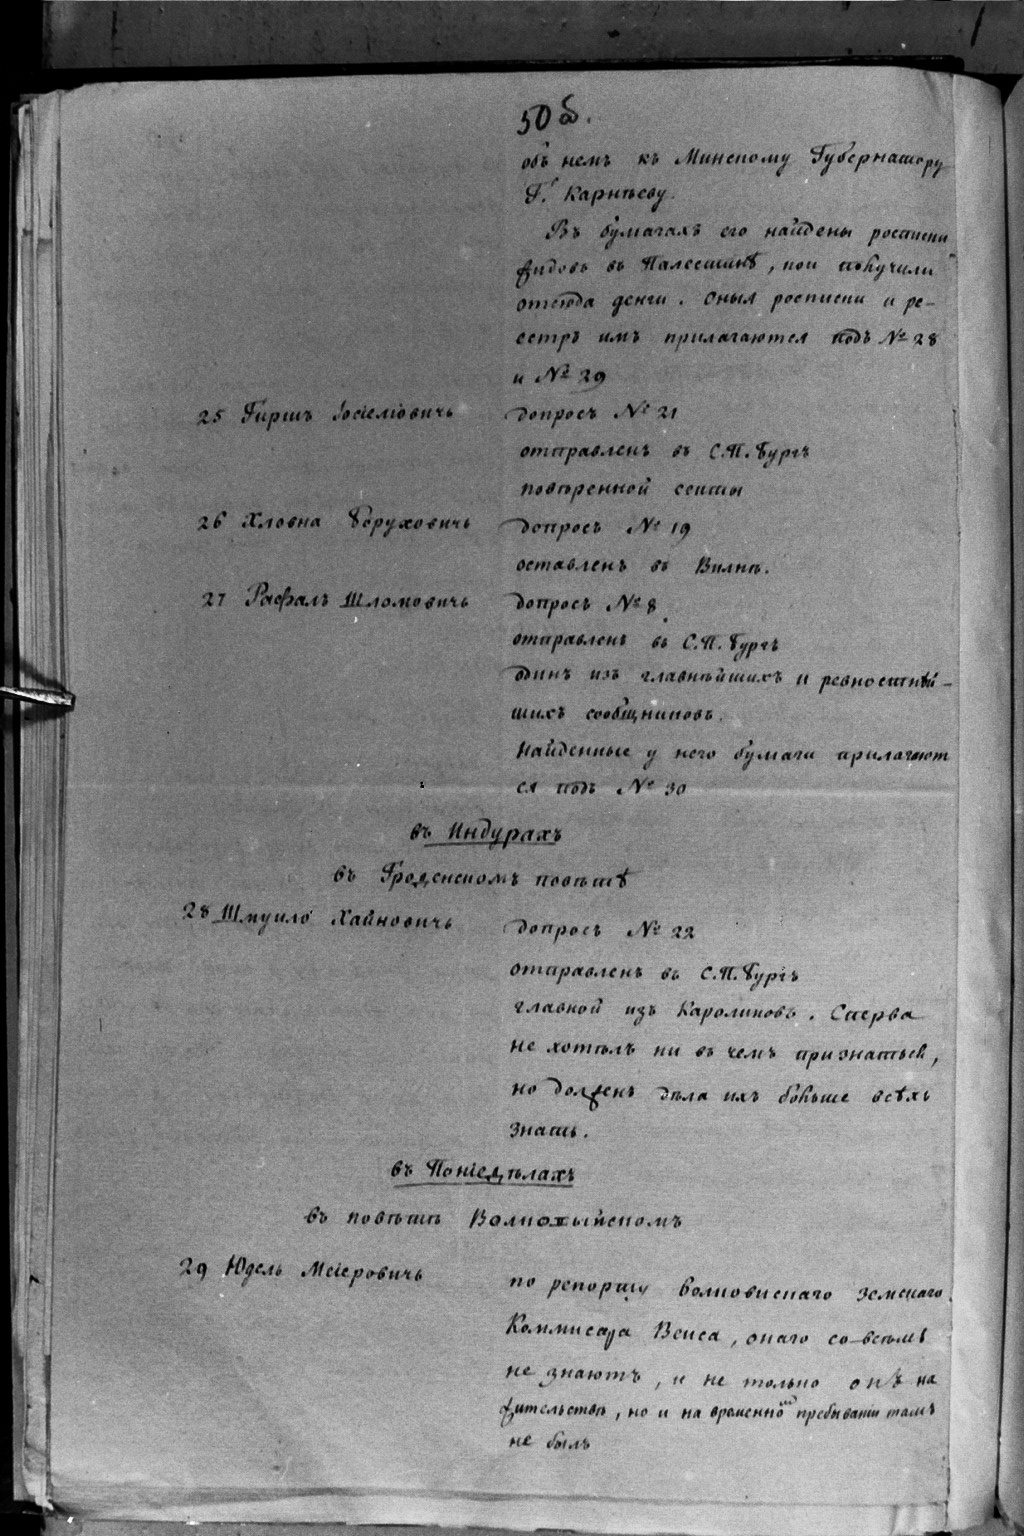 50 б.
объ немъ къ Минскому Губернатору
Г. Карнѣеву.
Въ бумагахъ его найдены росписки
жидовъ въ Палестинѣ, кои получили
отсюда денги. Оныя росписки и ре-
естръ имъ прилагаются подъ № 28
и № 29
25 Гиршъ Іосіеліовичь
допросъ № 21
отправленъ въ С.П.Бургъ
повѣренной секты
26 Хловна Боруховичь
допросъ № 19
оставленъ въ Вилнѣ.
27 Рафалъ Шломовичь
допросъ № 8
отправленъ въ С.П.Бургъ
одинъ изъ главнѣйшихъ и ревностнѣй-
шихъ сообщниковъ.
Найденные у него бумаги прилагают
ся подъ № 30
въ Индурахъ
въ Гродзенскомъ повѣтѣ
28 Шмуило Хаймовичь
допросъ № 22
отправленъ въ С.П.Бургъ
главной изъ Каролиновъ. Сперва
не хотѣлъ ни въ чемъ признаться,
но долженъ дѣла ихъ больше всѣхъ
знать.
въ Поніедѣлахъ
въ повѣтѣ Волкохыйскомъ
29 Юдель Меіеровичь
по репорту Волковискаго Земскаго
Коммисара Веиса, онаго со-всѣмъ
не знаютъ, и не только онъ на
жительствѣ, но и на временномъ пребываніи тамъ
не былъ